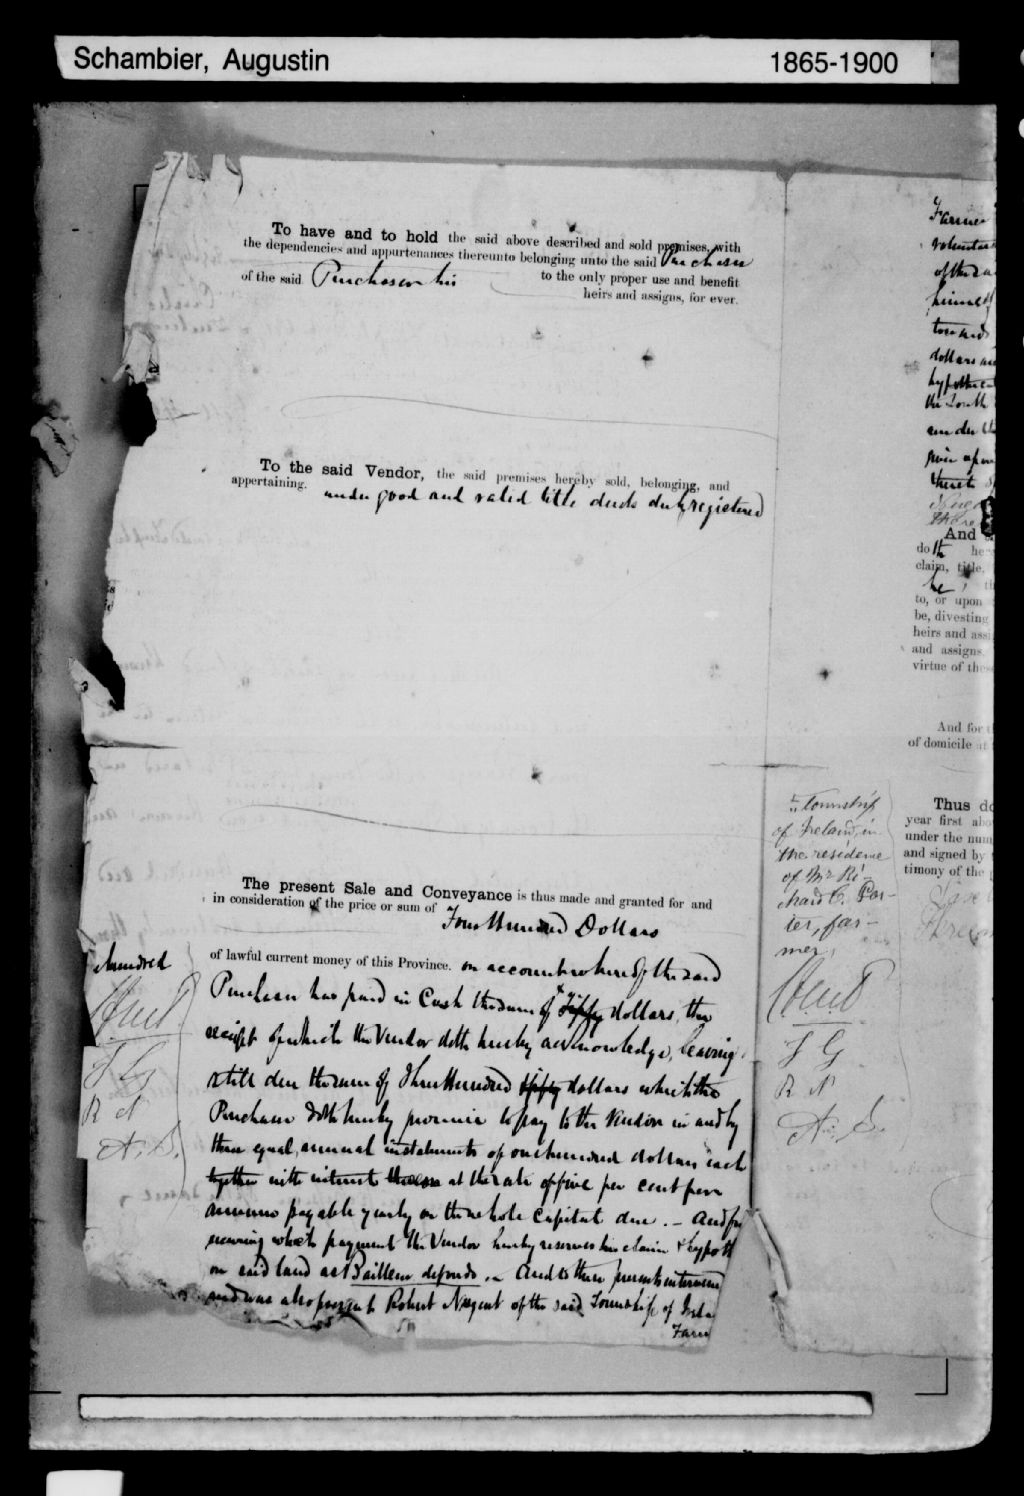 Schambier, Augustin
1865-1900
To have and to hold the said above described and sold premises, with
the dependencies and appurtenances thereunto belonging unto the said Purchaser
to the only proper use and benefit
of the said Purchaser his
heirs and assigns, for ever.
To the said Vendor, the said premises hereby sold, belonging, and
appertaining. under good and valid title deeds duly registered
The present Sale and Conveyance is thus made and granted for and
in consideration of the price or sum of Four Hundred Dollars
of lawful current money of this Province. on account whereof the said
Purchaser has paid in Cash the sum of fifty dollars, the
receipt of which the Vendor doth hereby acknowledge, leaving
still due the sum of Three Hundred fifty dollars which the
Purchaser doth hereby promise to pay to the Vendor in and by
three equal, annual instalments of one hundred dollars each
together with interest thereon at the rate of five per cent per
annum payable yearly on the whole Capital due. - And for
securing which payment the Vendor hereby reserves his claim & hypoth
on said land as Bailleur de fonds. - And to these presents intervened
and was also present Robert Nugent of the said Township of Irela
Farm
hundred
F G
R N
A. S.
township
of Ireland, in
the residence
of Mr Ri-
chard C. Por-
ter, far-
mer,
F G
R N
A. S.
Farmer
voluntar
of the sa
himself
towards
dollars an
hypothec
the South
under th
And
doth he
claim, title,
he, th
to, or upon
be, divesting
heirs and assi
and assigns,
virtue of the
And for
of domicile at
Thus do
year first abo
under the num
and signed by
timony of the